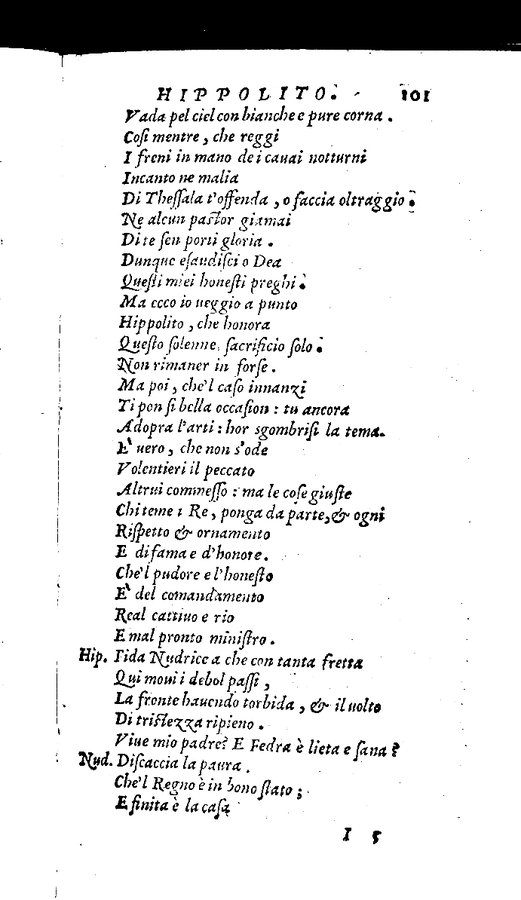 HIPPOLITO. 101
Vada pel ciel con bianche e pure corna.
Coſi mentre, che reggi
I freni in mano de i caual notturni
Incanto ne malia
Di Theſſala t'offenda, o faccia oltraggio:
Ne alcun paſtor giamai
Di te ſen porti gloria.
Dunque eſaudiſci o Dea
Queſti miei honeſti preghi:
Ma ecco io ueggio a punto
Hippolito, che honora
Queſto ſolenne, ſacrificio ſolo:
Non rimaner in forſe.
Ma poi, che'l caſo innanzi
Ti pon ſi bella occaſion: tu ancora
Adopra l'arti: hor sgombriſi la tema.
E' uero, che non s'ode
Volentieri il peccato
Altrui commeſſo: ma le coſe giuſte
Chi teme i Re, ponga da parte, & ogni
Riſpetto & ornamento
E di fama e d'honore.
Che'l pudore e l'honeſto
E' del comandamento
Real cattiuo e rio
E mal pronto miniſtro.
Hip. Fida Nudrice a che con tanta fretta
Qui moui i debol paſſi,
La fronte hauendo torbida, & il uolto
Di triſtezza ripieno.
Viue mio padre? E Fedra è lieta e ſana?
Nud. Diſcaccia la paura.
Che'l Regno è in bono ſtato;
E finita è la caſa
I 5